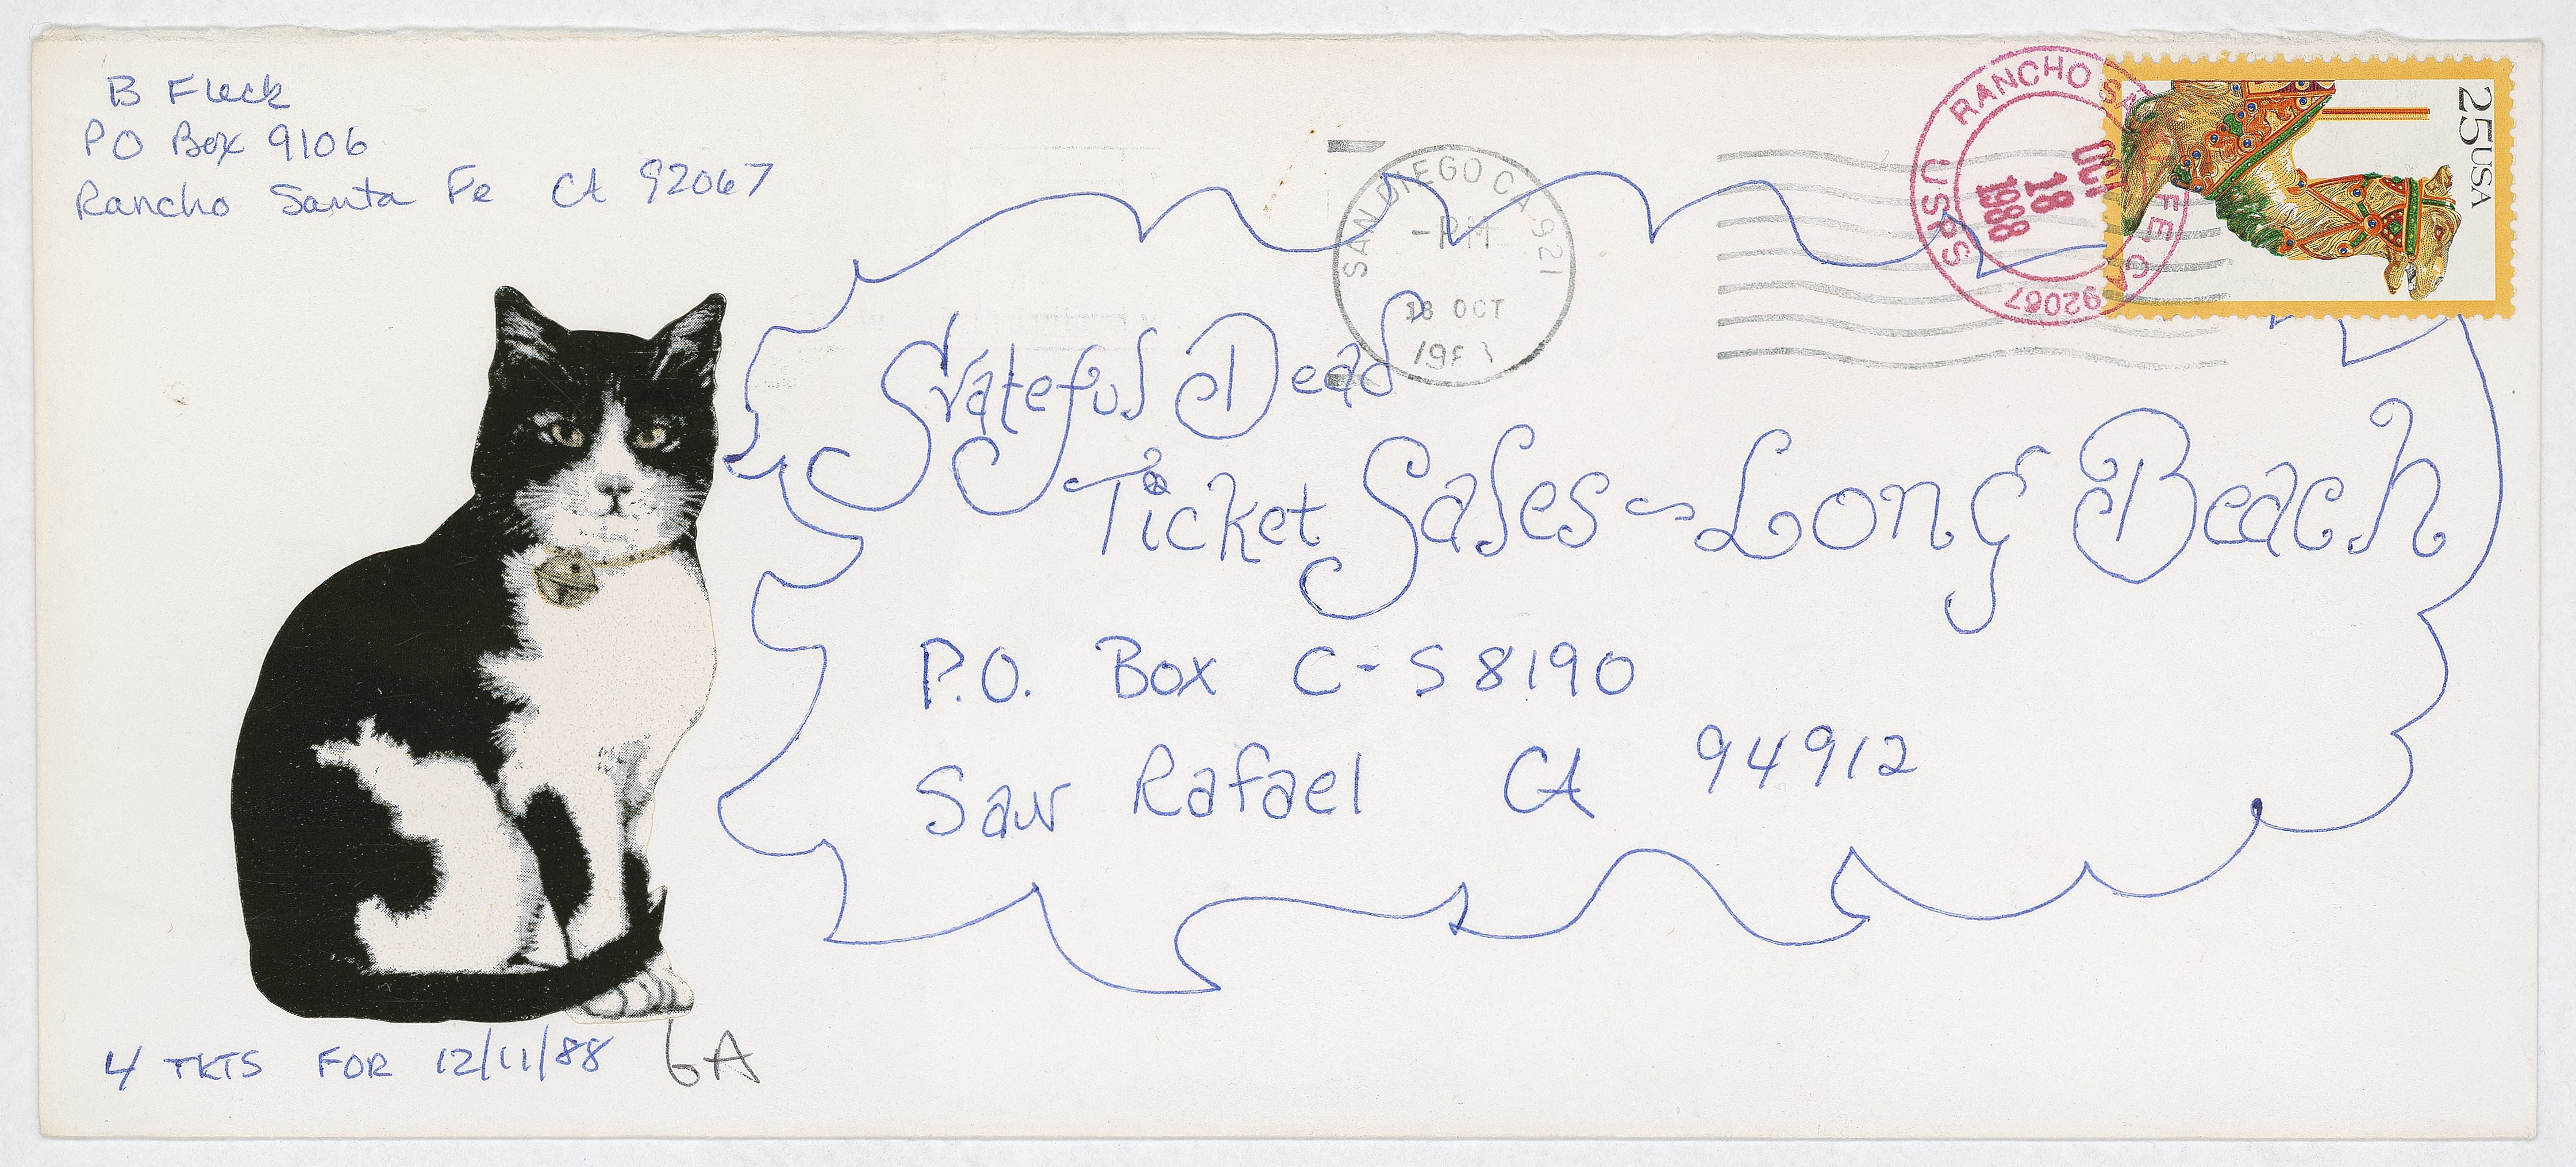 B Fleck
PO Box 9106
Rancho Santa Fe CA 92067
SAN DIEGO CA 921
-PM
18 OCT
RANCHO SANTA FE CA
OCT
18
1988
USPS
92067
25USA
Grateful Dead
Ticket Sales ~ Long Beach
P.O. Box C-S 8190
San Rafael CA 94912
4 TKTS FOR 12/11/88 6A